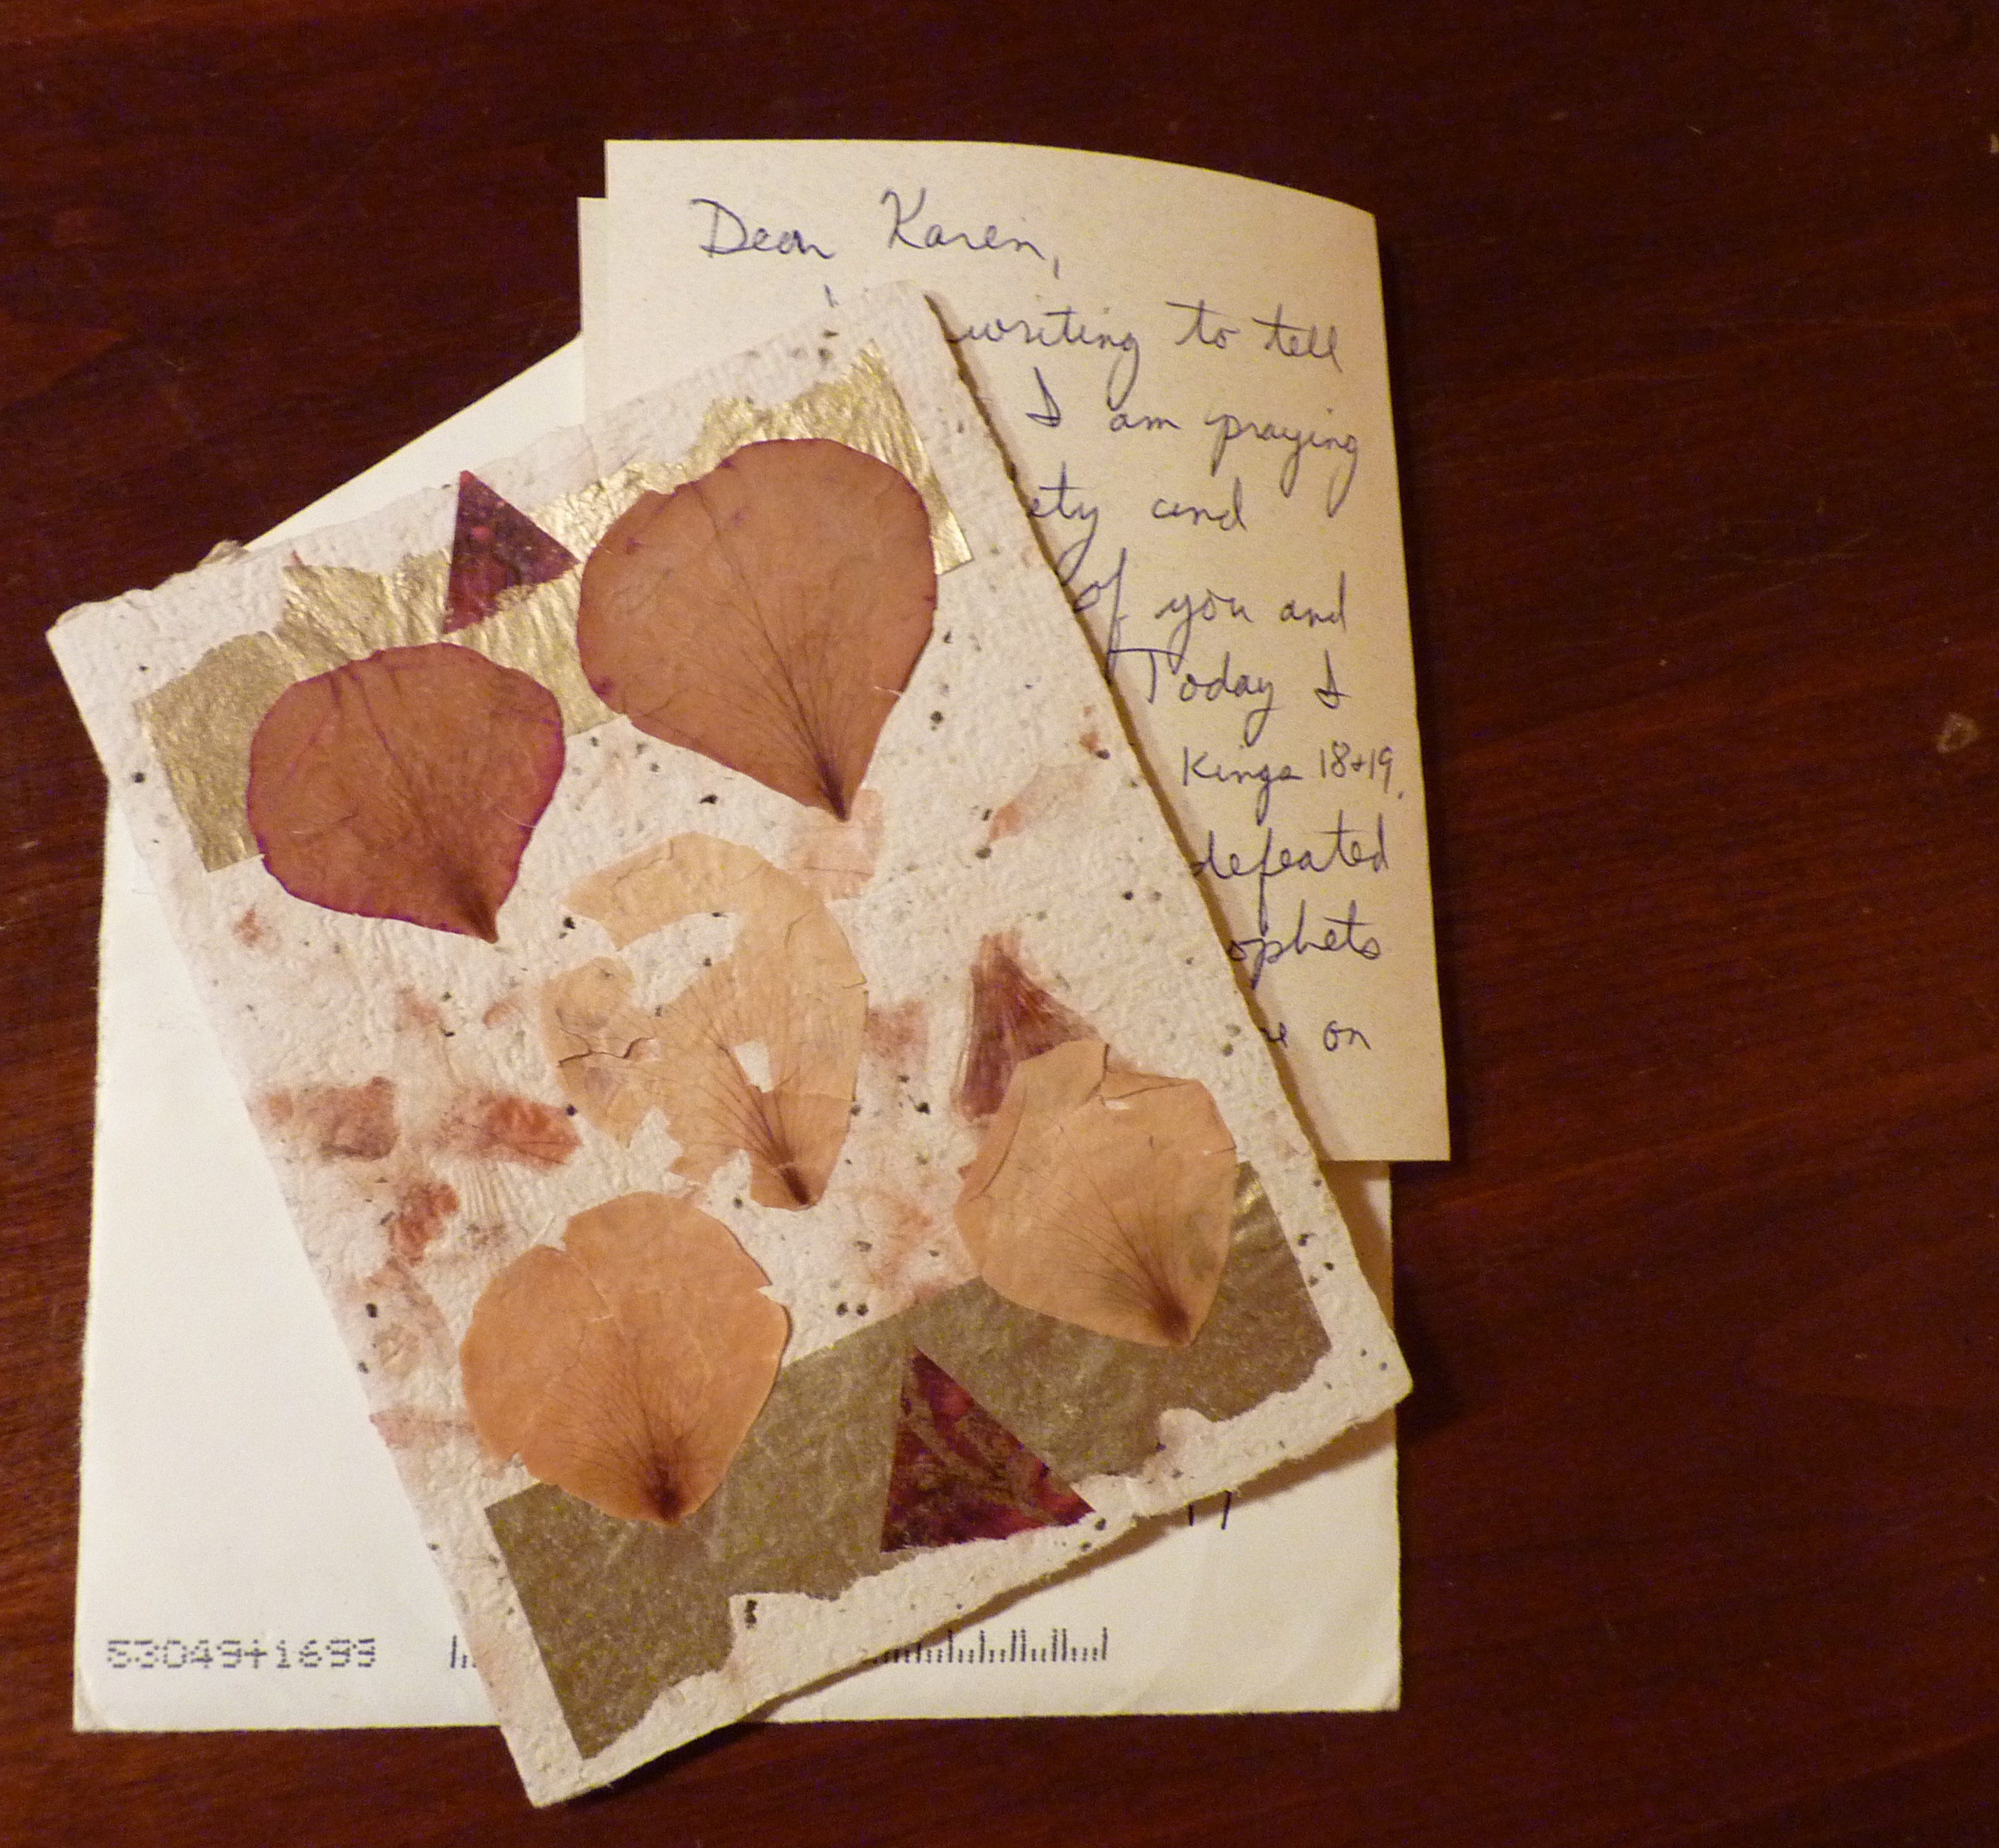 Dear Karen,
writing to tell
I am praying
ety and
of you and
Today I
Kings 18+19.
defeated
ophets
e on
53049+1699